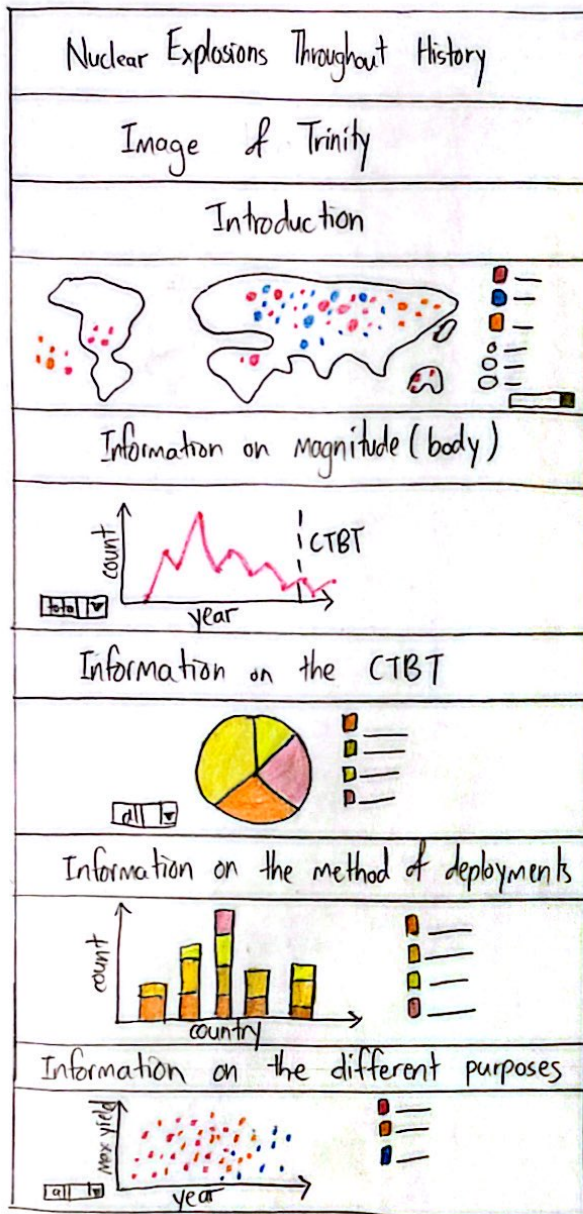 Nuclear Explosions Throughout History
Image of Trinity
Introduction
Information on magnitude (body)
count
CTBT
total
year
Information on the CTBT
all
Information on the method of deployments
count
country
Information on the different purposes
Max yield
all
year